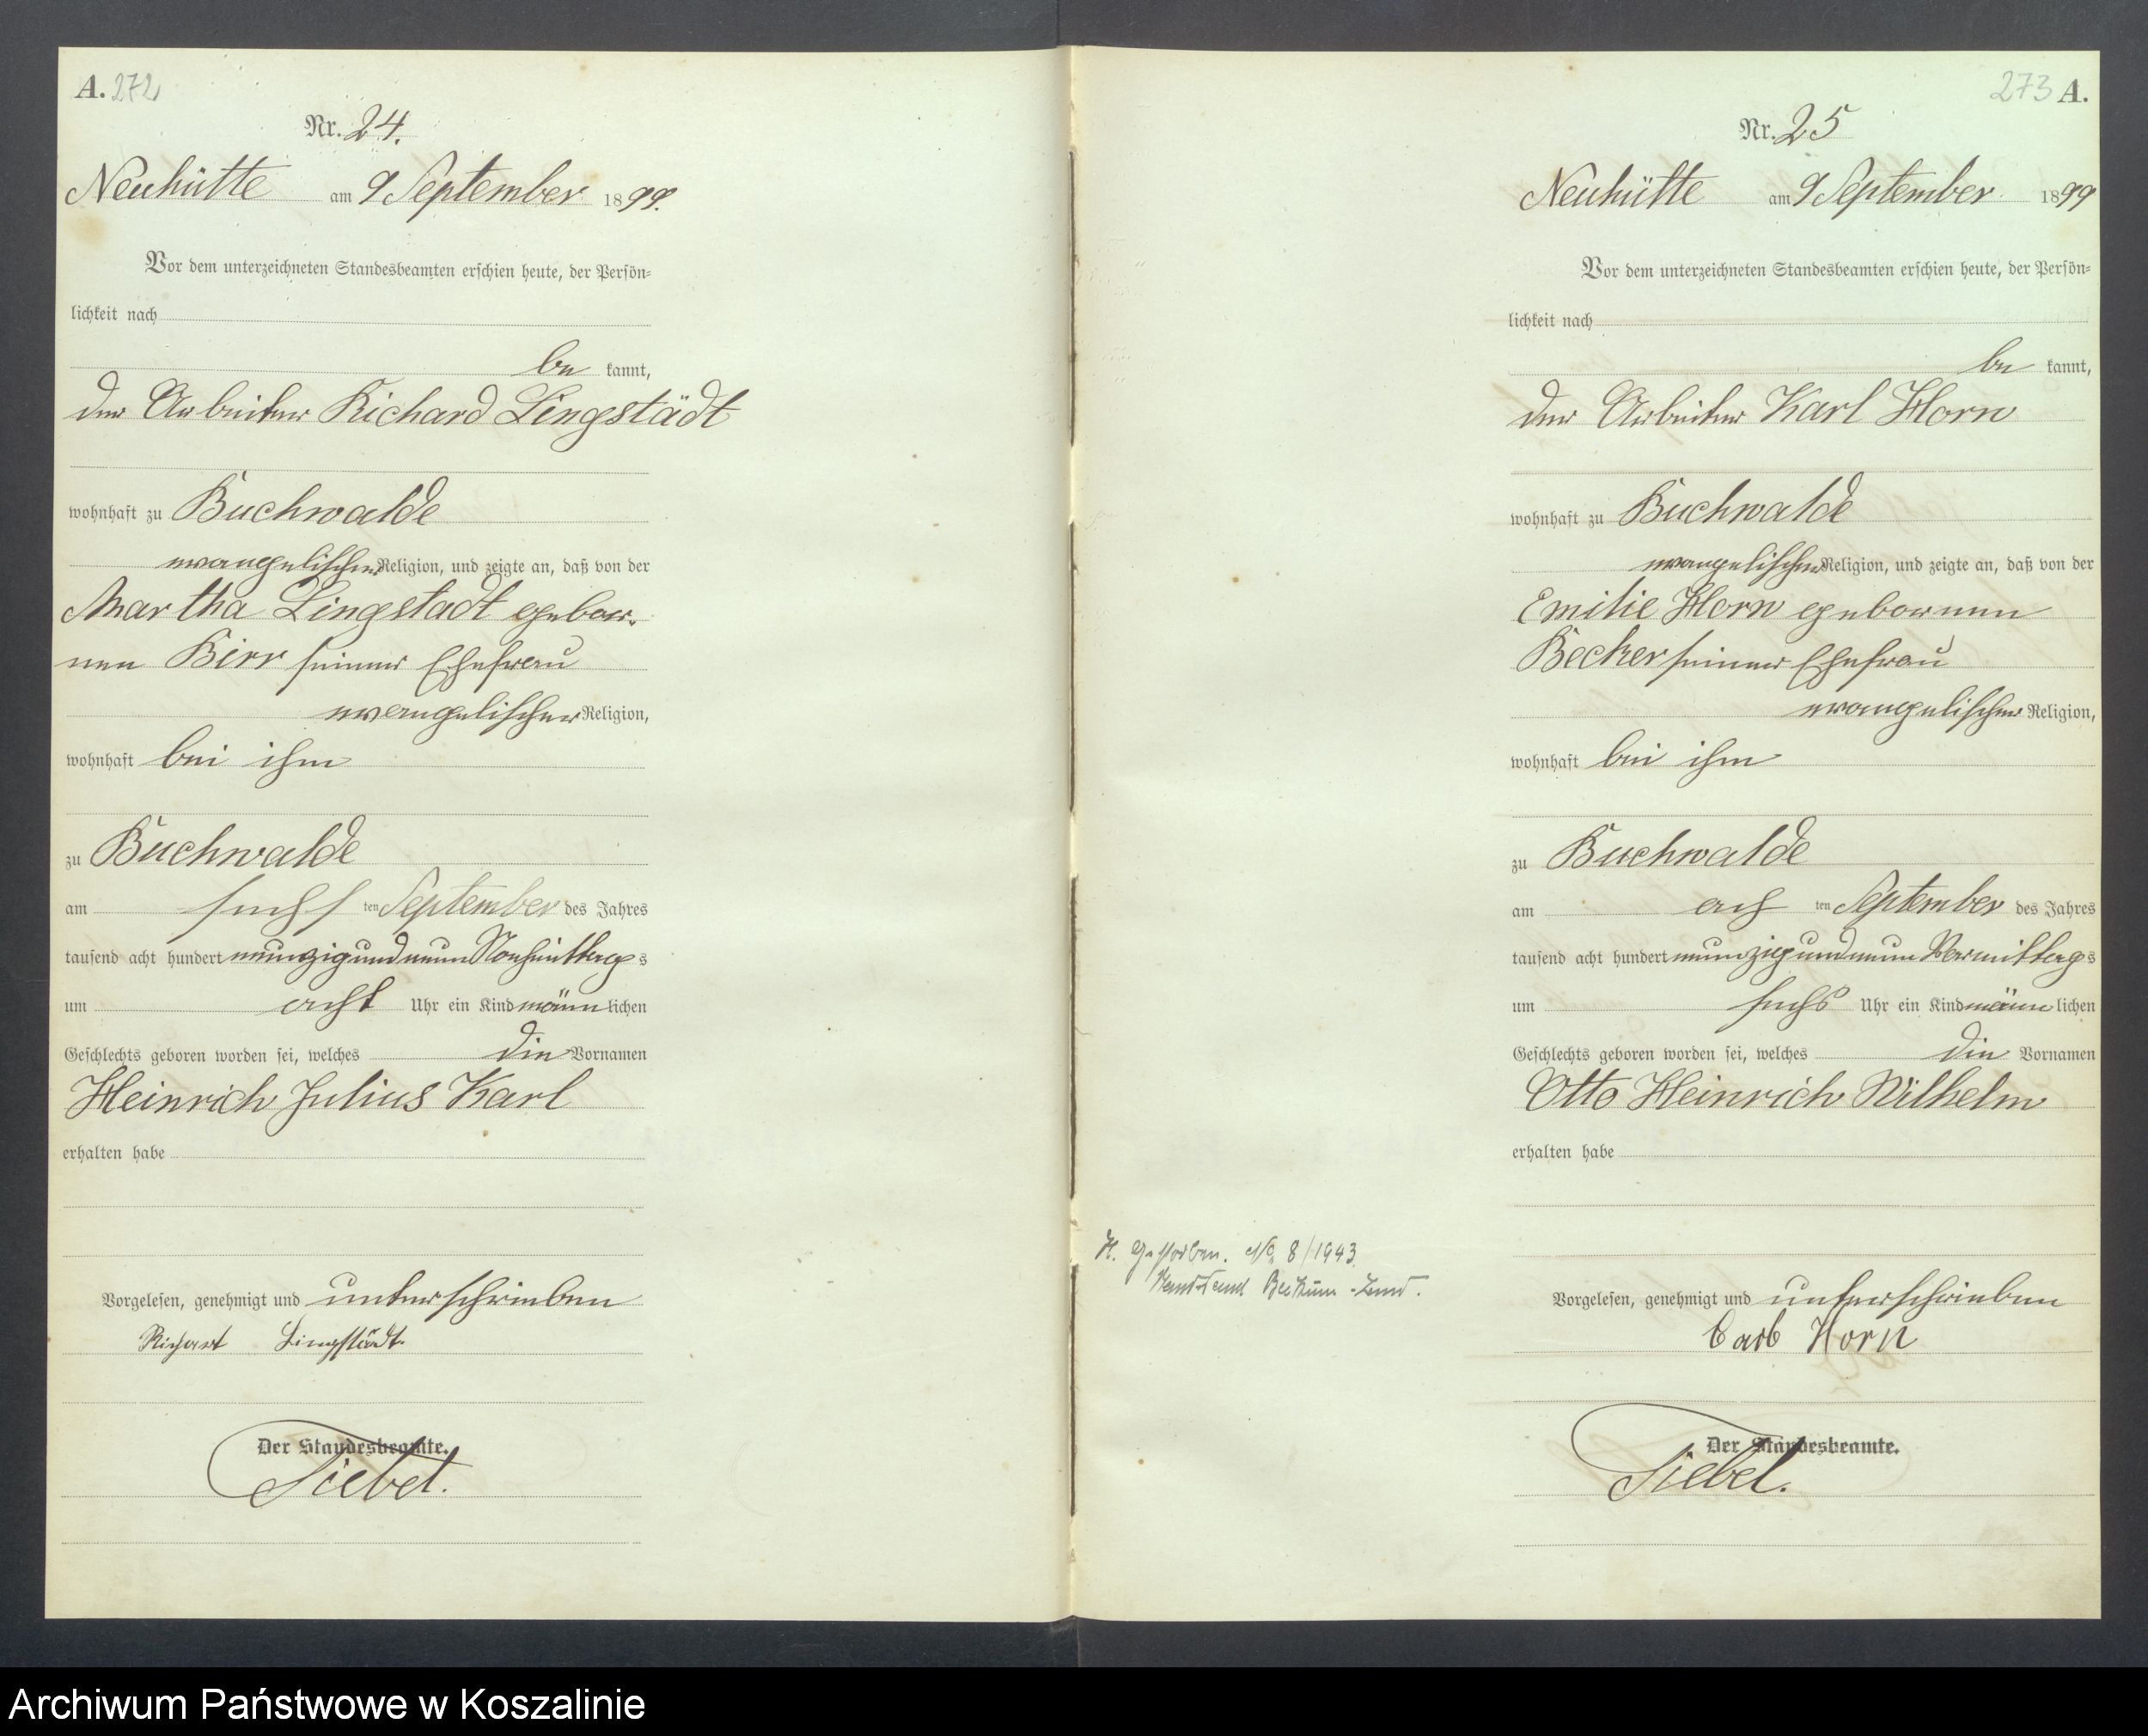 A. 272
Nr. 24.
Neuhütte am 9 September 1899.
Vor dem unterzeichneten Standesbeamten erschien heute, der Persön=
lichkeit nach
be kannt,
der Arbeiter Richard Lingstädt
wohnhaft zu Buchwalde
evangelischer Religion, und zeigte an, daß von der
Martha Lingstädt gebor.
nen Birr seiner Ehefrau
evangelischer Religion,
wohnhaft bei ihm
zu Buchwalde
am sechs ten September des Jahres
tausend acht hundert neunzig und neun Nachmittags
um acht Uhr ein Kind männlichen
Geschlechts geboren worden sei, welches die Vornamen
Heinrich Julius Karl
erhalten habe
Vorgelesen, genehmigt und unterschrieben
Richart Lingstädt
Der Standesbeamte.
Tiebel.
273 A.
Nr. 25
Neuhütte am 9 September 1899
Vor dem unterzeichneten Standesbeamten erschien heute, der Persön=
lichkeit nach
be kannt,
der Arbeiter Karl Horn
wohnhaft zu Buchwalde
evangelischer Religion, und zeigte an, daß von der
Emilie Horn geborenen
Becker seiner Ehefrau
evangelischer Religion,
wohnhaft bei ihm
zu Buchwalde
am ach ten September des Jahres
tausend acht hundert neunzig und neun Vormittags
um sechs Uhr ein Kind männlichen
Geschlechts geboren worden sei, welches die Vornamen
Otto Heinrich Wilhelm
erhalten habe
H. Gestorben. No. 8/1943
Beckum-Land.
Vorgelesen, genehmigt und unterschrieben
Carl Horn
Der Standesbeamte.
Tiebel.
Archiwum Państwowe w Koszalinie